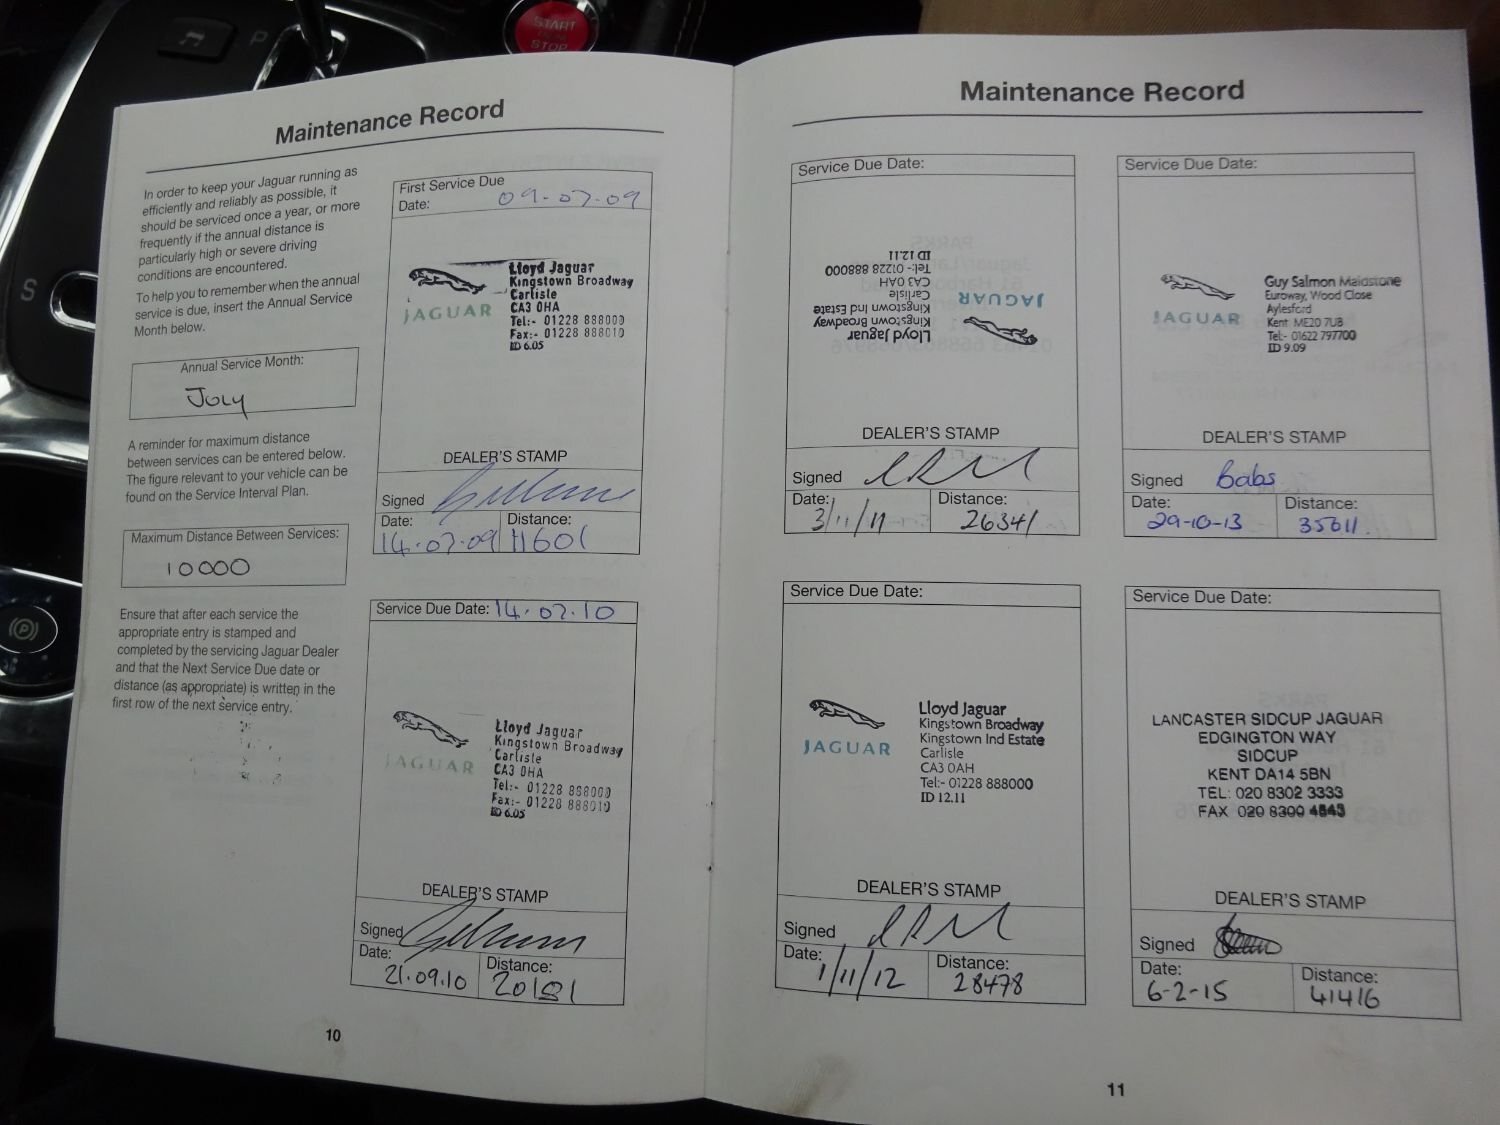 START
STOP
P
S
Maintenance Record
In order to keep your Jaguar running as
efficiently and reliably as possible, it
should be serviced once a year, or more
frequently if the annual distance is
particularly high or severe driving
conditions are encountered.
To help you to remember when the annual
service is due, insert the Annual Service
Month below.
Annual Service Month:
July
A reminder for maximum distance
between services can be entered below.
The figure relevant to your vehicle can be
found on the Service Interval Plan.
Maximum Distance Between Services:
10000
Ensure that after each service the
appropriate entry is stamped and
completed by the servicing Jaguar Dealer
and that the Next Service Due date or
distance (as appropriate) is written in the
first row of the next service entry.
First Service Due
Date: 09.07.09
JAGUAR
Lloyd Jaguar
Kingstown Broadway
Carlisle
CA3 0HA
Tel:- 01228 888000
Fax:- 01228 888010
ID 6.05
DEALER'S STAMP
Signed
Date: Distance:
14.07.09 11601
Service Due Date: 14.07.10
JAGUAR
Lloyd Jaguar
Kingstown Broadway
Carlisle
CA3 0HA
Tel:- 01228 888000
Fax:- 01228 888010
ID 6.05
DEALER'S STAMP
Signed
Date: Distance:
21.09.10 20181
10
Maintenance Record
Service Due Date:
JAGUAR
Lloyd Jaguar
Kingstown Broadway
Kingstown Ind Estate
Carlisle
CA3 0AH
Tel:- 01228 888000
ID 12.11
DEALER'S STAMP
Signed
Date: Distance:
3/11/11 26341
Service Due Date:
JAGUAR
Guy Salmon Maidstone
Euroway, Wood Close
Aylesford
Kent ME20 7UB
Tel:- 01622 797700
ID 9.09
DEALER'S STAMP
Signed Babs
Date: Distance:
29-10-13 35011.
Service Due Date:
JAGUAR
Lloyd Jaguar
Kingstown Broadway
Kingstown Ind Estate
Carlisle
CA3 0AH
Tel:- 01228 888000
ID 12.11
DEALER'S STAMP
Signed
Date: Distance:
1/11/12 28478
Service Due Date:
LANCASTER SIDCUP JAGUAR
EDGINGTON WAY
SIDCUP
KENT DA14 5BN
TEL: 020 8302 3333
FAX 020 8300 4843
DEALER'S STAMP
Signed
Date: Distance:
6-2-15 41416
11